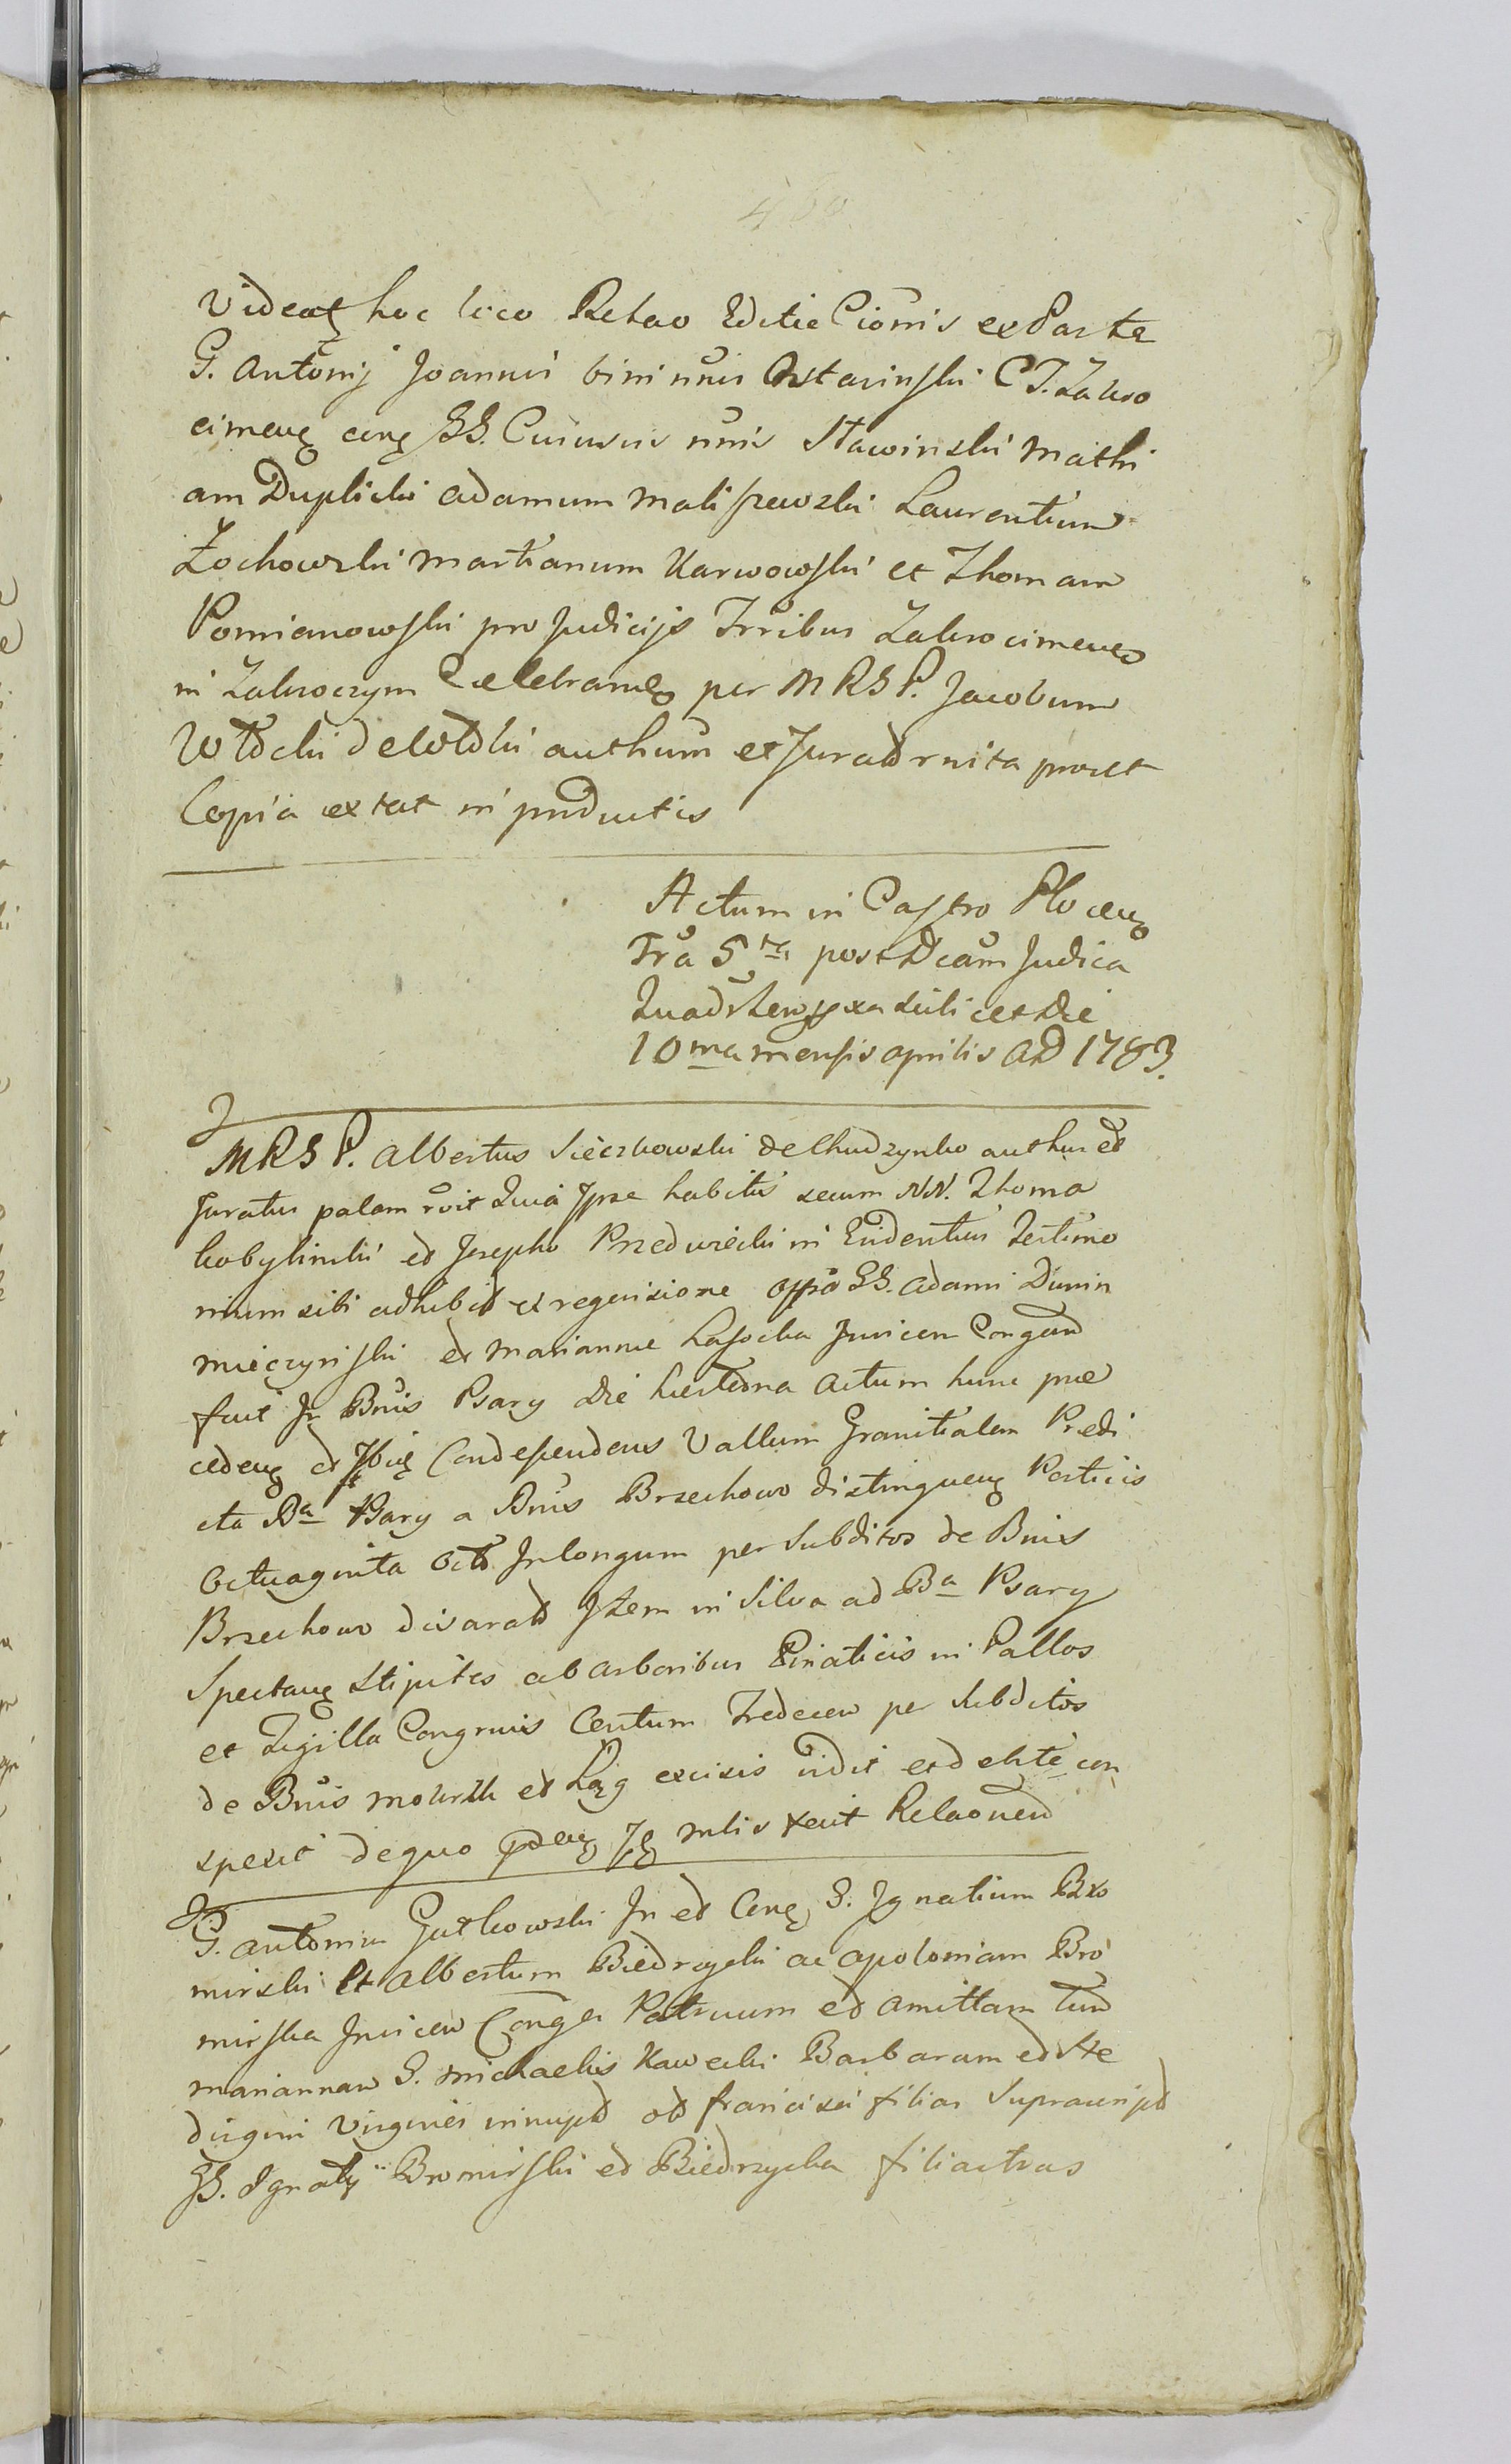 460
Videat hoc loco Relao Editae Cionis ex Parte
G. Antonij Joannis bini nnis Ostasinski C T. Zakro
cimen conq GG. Cursus nnis Stawinski Mathi
am Duplicki Adamum Maliszewski Laurentium
Zochowski Martianum Karwowski et Thomam
Pomianowski pro Judicijs Trribus Zakrocimen
in Zakroczym Celebran per MRSP. Jacobum
de authum et Jurat rnita prout
Copia extat in productis
Actum in Castro Plocen
Fra 5ta post Dcam Judica
Quadragexa scilicet die
10ma mensis Aprilis AD 1783.
MRSP. Albertus Sieczkowski de Chudzynko authus et
Juratus palam rvit Quia Ipse habitis secum NN. Thoma
Kobylinski et Josepho Przedwiecki in Evidentius Testimo
nium sibi adhibit ex reqvisione Offa GG. Adami Dunin
Mieczynski et Marianne Lasocka Invicem Congend
fuit In Bnis Psary die hesterna Actum hunc prae
ceden et Ibiq Condescendens Vallum Granitialem Praedi
cta Ba Psary a Bnis Brzechowo distinguen Perticis
Octuaginta Octo In longum per Subditos de Bnis
Brzechowo disarat Item in Silva ad Ba Psary
Spectan Stipites ab Arboribus Pinaticis in Pallos
et Tigilla Congruis Centum Tredecem per Subditos
de Bnis Mokrsk et Łęg excisis vidit et debite con
spexit de quo pden Is mlis fecit Relaonem
G. Antonius Gutkowski In et Conq G. Ignatium Bro
mirski et Albertum Biedrzycki ac Apoloniam Bro
mirska Invicem Conges Patruum et Amittam tum
Mariannam G. Michaelis Kawecki Barbaram et He
dvigim Virgines innupt ot Francisci filias Suprascript
GG. Ignatij Bromirski et Biedrzycka filiastras